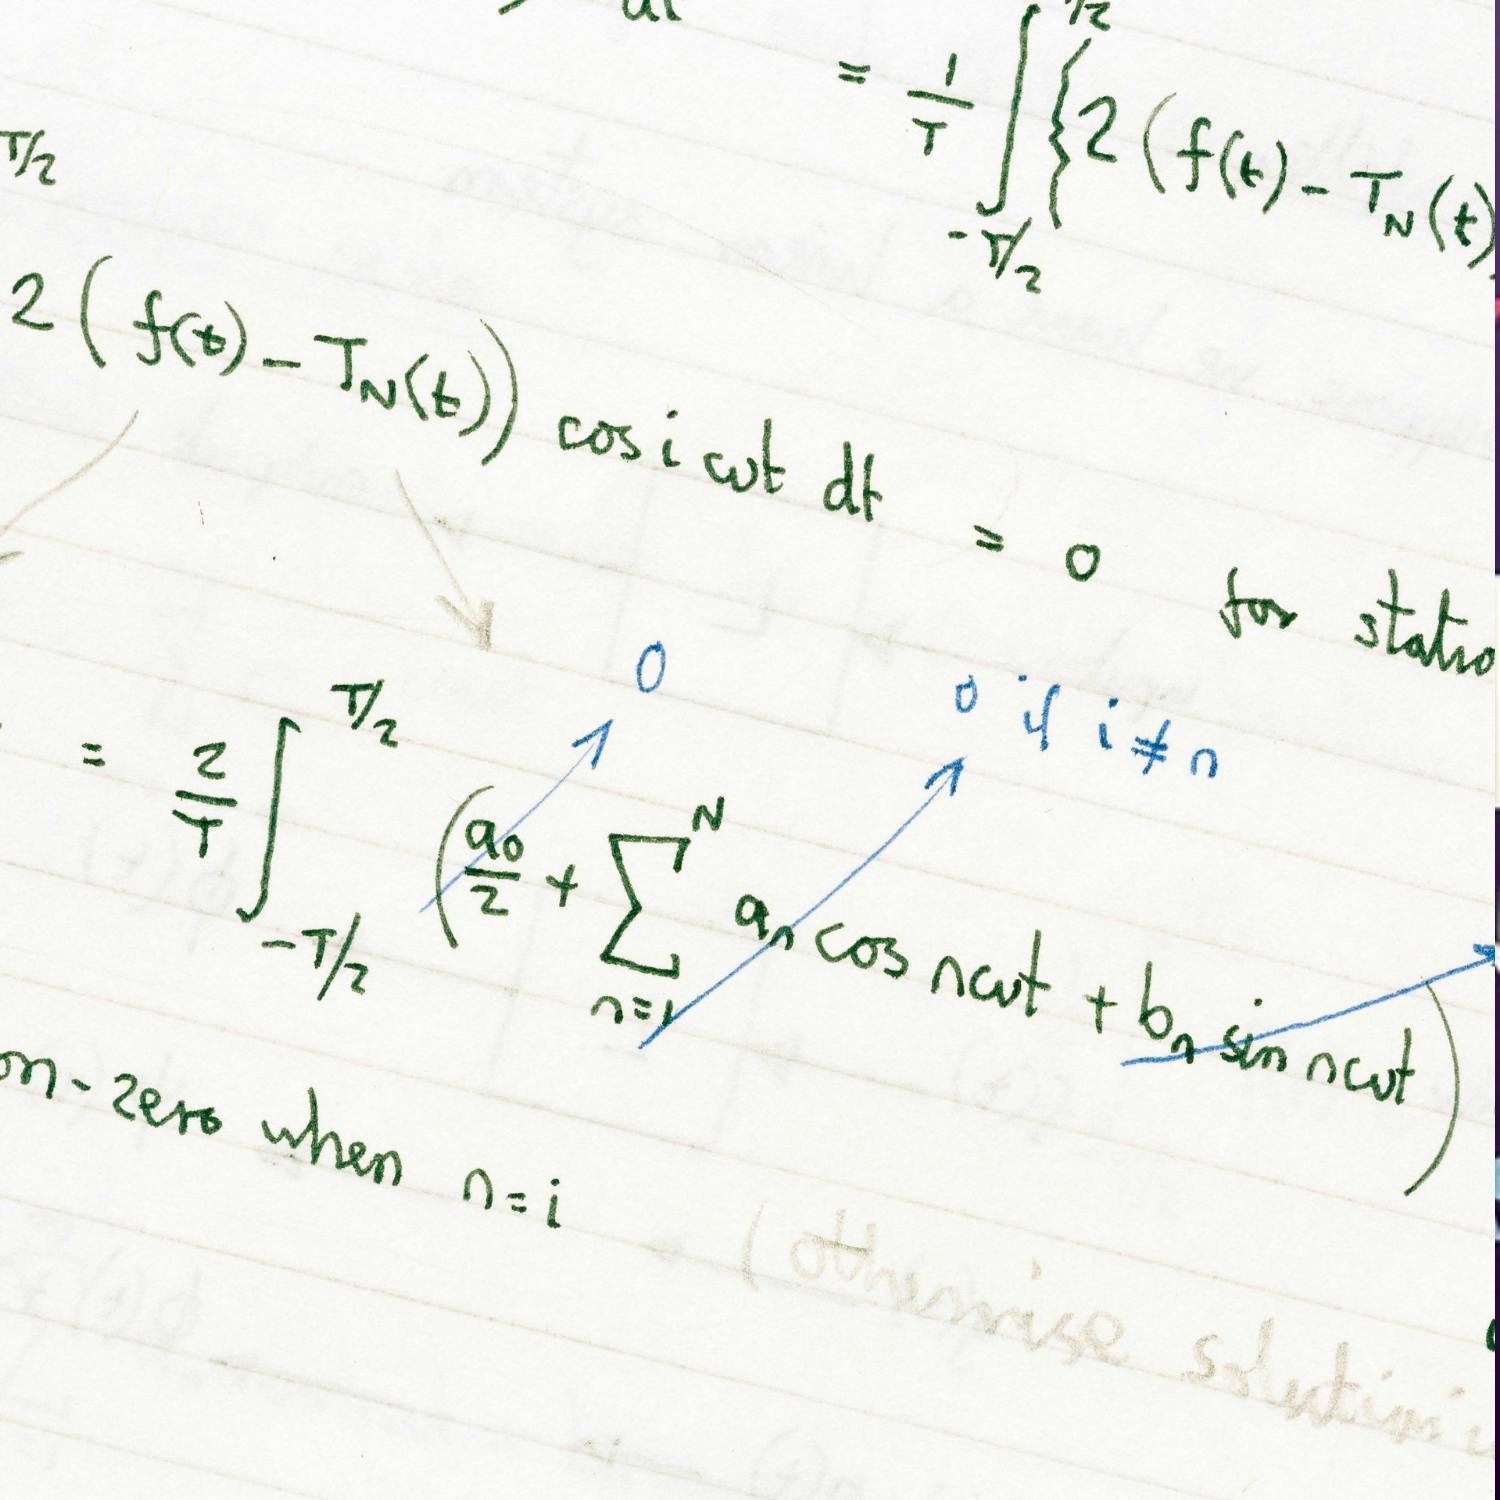 = 1/T ∫_{-T/2}^{T/2} { 2 ( f(t) - T_N(t)
T/2
2 ( f(t) - T_N(t) ) cos i ωt dt = 0 for statio
0
0 if i ≠ n
= 2/T ∫_{-T/2}^{T/2} ( a_0/2 + ∑_{n=1}^{N} a_n cos nωt + b_n sin nωt )
on-zero when n = i
( otherwise solution